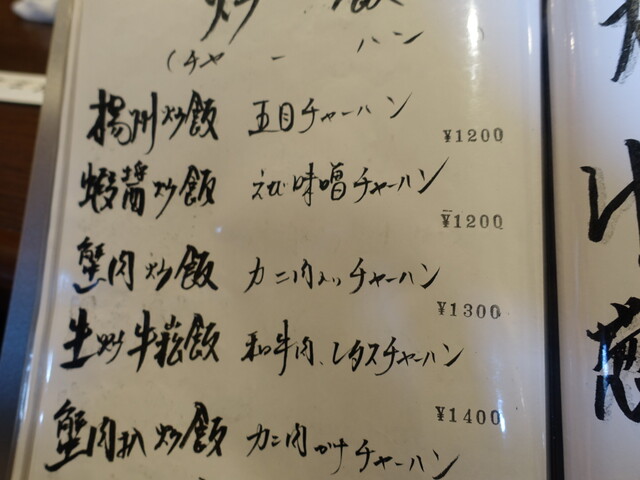 炒飯
(チャーハン)
揚州炒飯 五目チャーハン
¥1200
蝦醤炒飯 えび味噌チャーハン
¥1200
蟹肉炒飯 カニ肉入りチャーハン
¥1300
生炒牛菘飯 和牛肉、レタスチャーハン
¥1400
蟹肉扒炒飯 カニ肉かけチャーハン